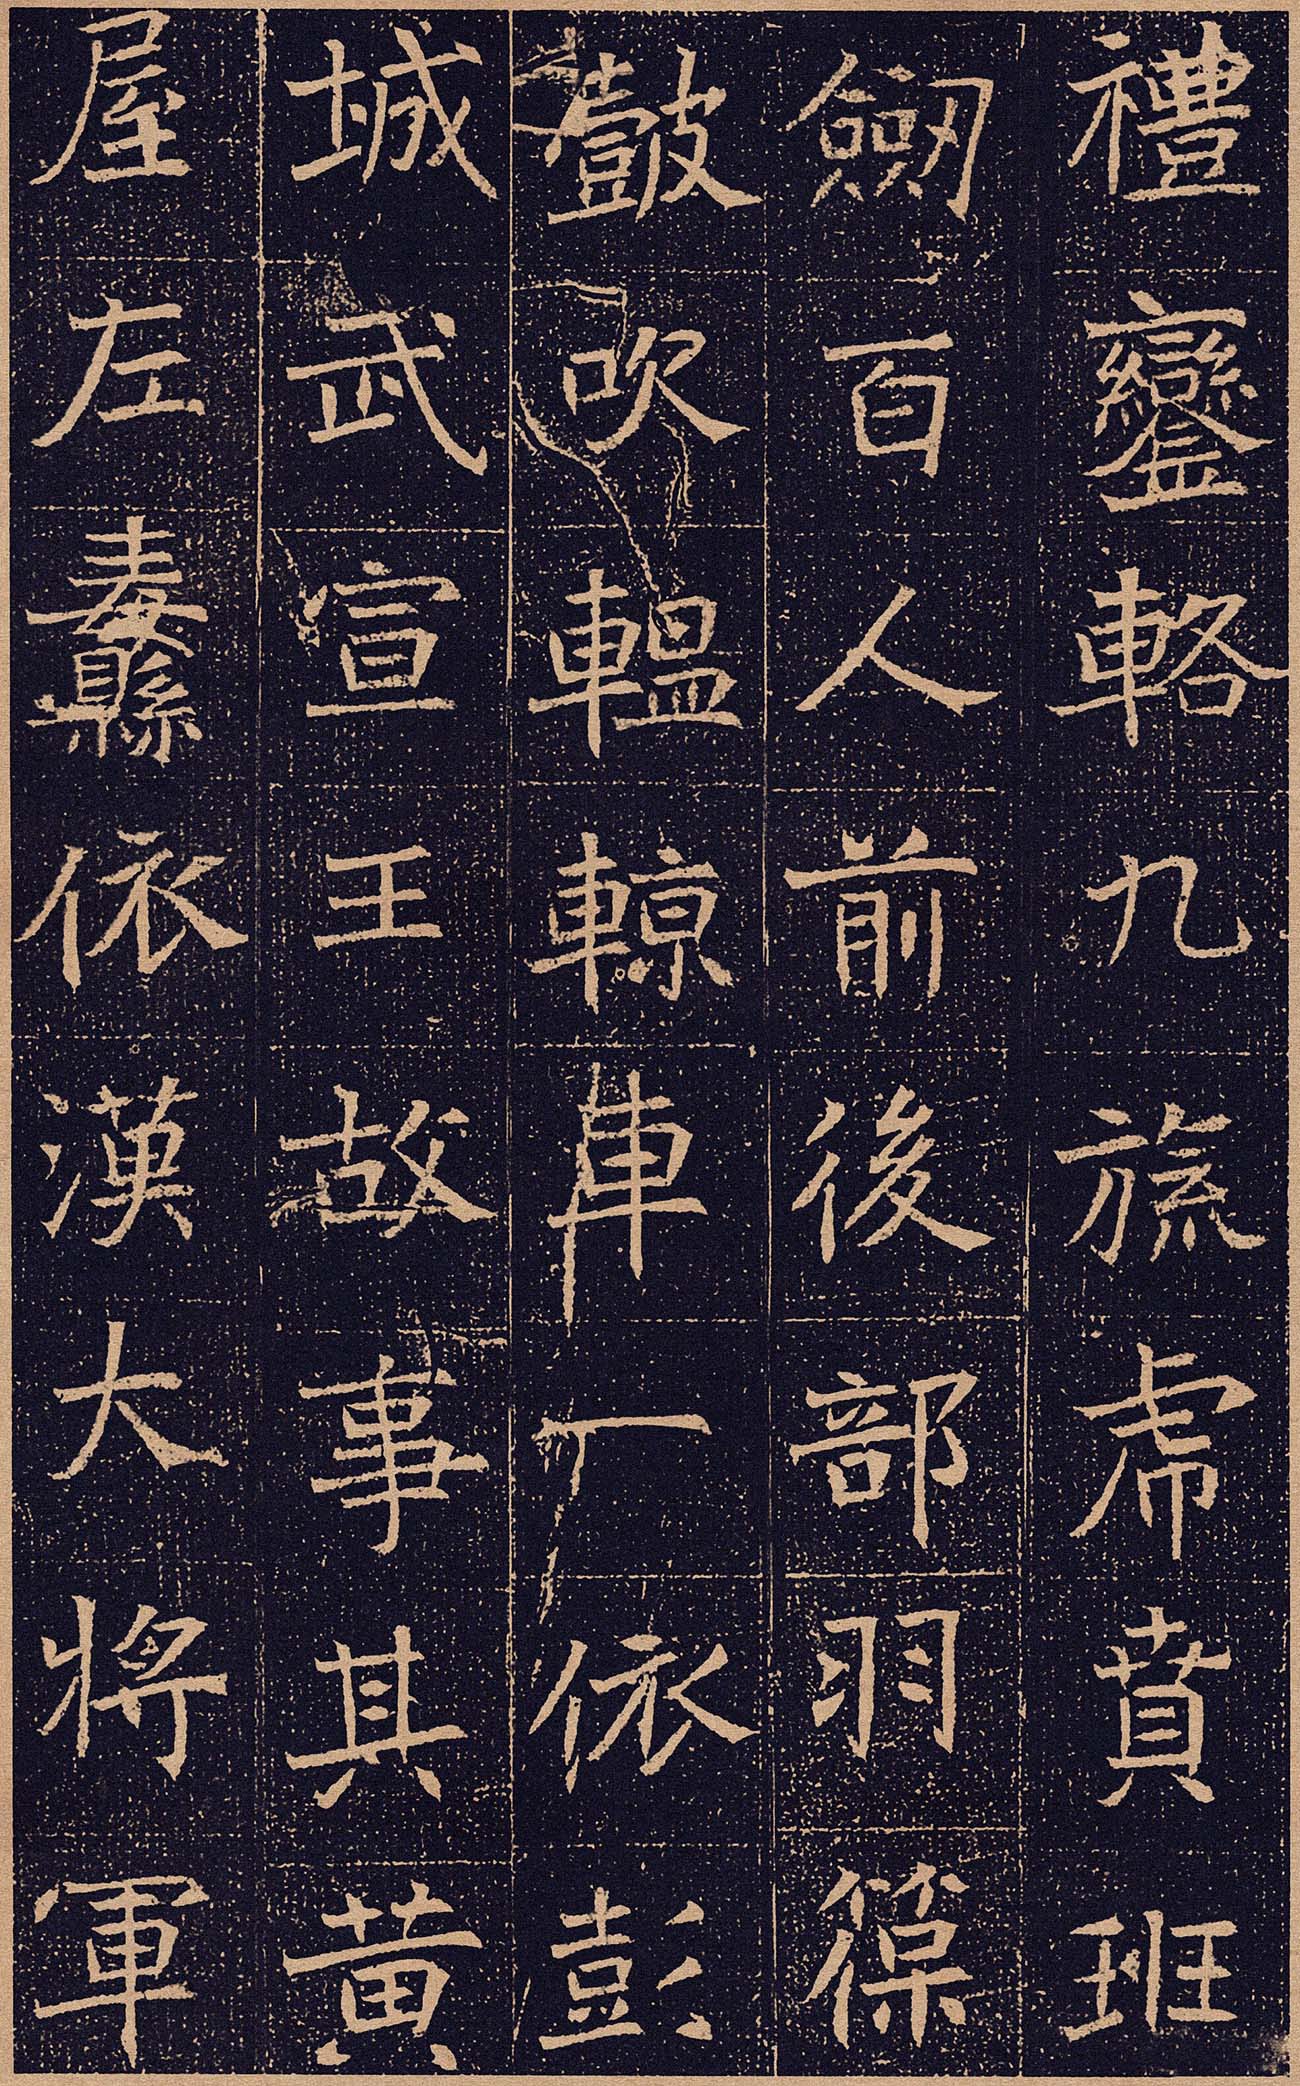 禮鑾輅九旒虎賁班
劒百人前後部羽葆
鼓吹轀輬車一依彭
城武宣王故事其黃
屋左纛依漢大將軍